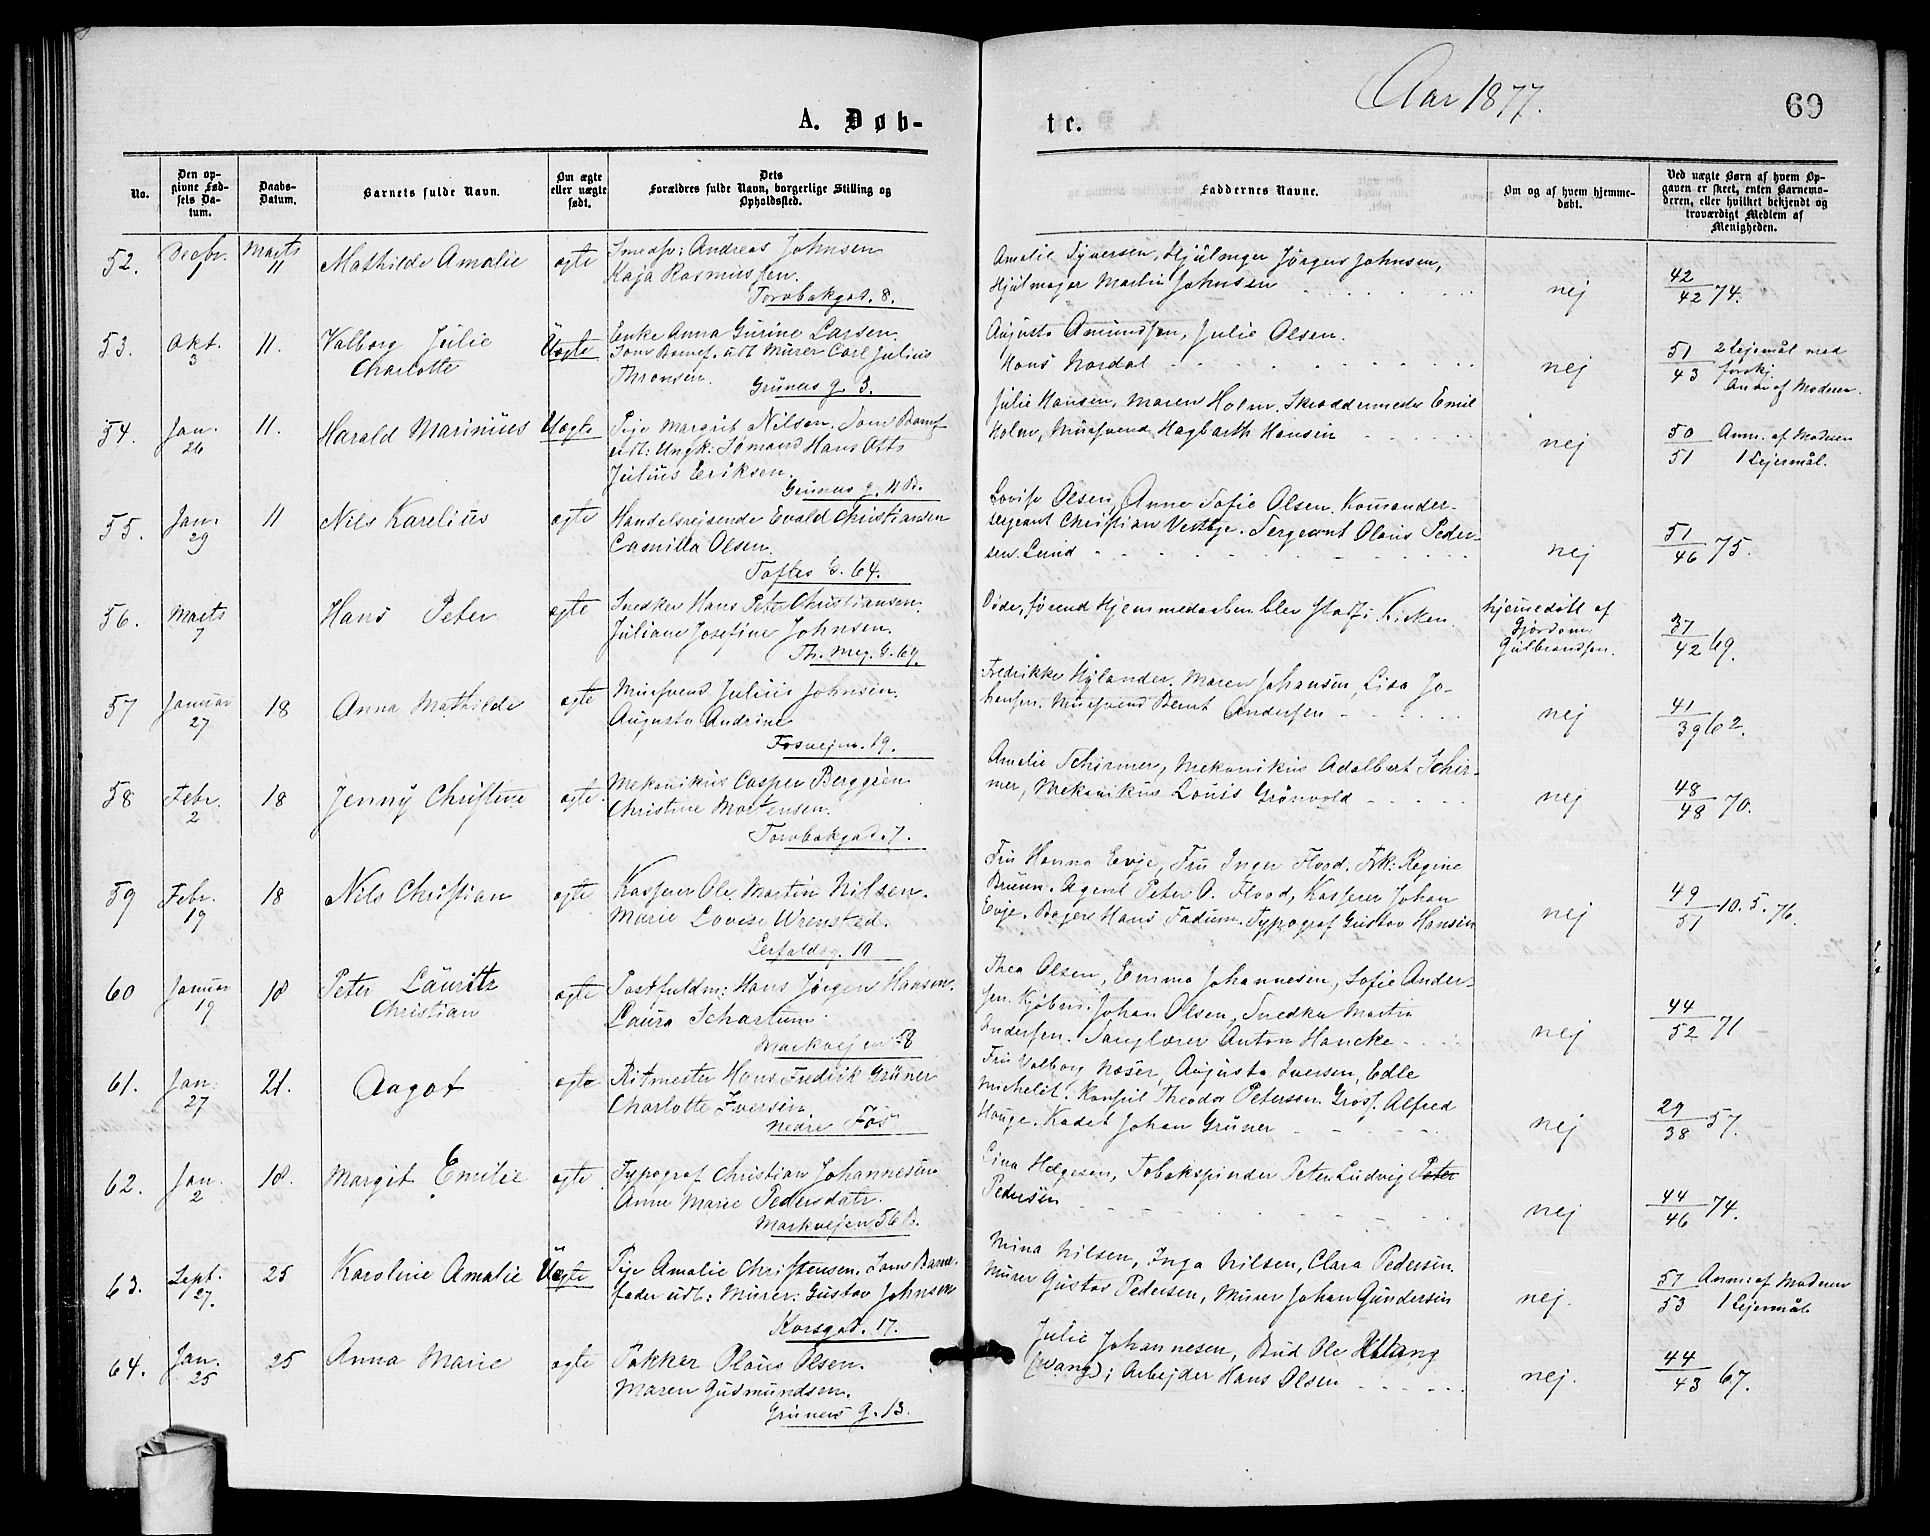 Aar 1877.
69
A. Døb-
te.
No.
Den op-
givne Fød-
sels Da-
tum.
Daabs-
Datum.
Barnets fulde Navn.
Om ægte
eller uægte
født.
Dets
Forældres fulde Navn, borgerlige Stilling og
Opholdssted.
Faddernes Navne.
Om og af hvem hjemme-
døbt.
Ved uægte Børn af hvem Op-
gaven er skeet, enten Barnemo-
deren, eller hvilket bekjendt og
troværdigt Medlem af
Menigheden.
52.
Decbr.
1
Marts
11
Mathilde Amalie
ægte
Smedsv: Andreas Johnsen
Kaja Rasmussen.
Torvbakgad. 8.
Amalie Syversen, Hjulmager Jörgen Johnsen,
Hjulmager Martin Johnsen
nej
42
42 74.
53.
Okt.
3
11.
Valborg Julie
Charlotte
Uægte
Enke Anna Gurine Larsen.
Som Barnef. udl: Murer Carl Julius
Thronsen.
Grüners g. 3.
Augusta Amundsen, Julie Olsen.
Hans Nordal
nej
51
43
2 Lejemål med
forskj.
Anm. af Moderen.
54.
Jan.
26
11.
Harald Marinius
Uægte
Pige Margrit Nilsen. Som Barnef.
udl: Ungk: Sömand Hans Otto
Julius Eriksen.
Grüners g. 11 B.
Julie Hansen, Maren Holm. Skræddermester Emil
Holm, Mursvend Hagbarth Hansen
nej
50
51
Anm. af Moderen
1 Lejermål.
55.
Jan.
29
11
Nils Karelius
ægte
Handelsrejsende Evald Christiansen
Camilla Olsen.
Toftes G. 64.
Lovise Olsen, Anne Sofie Olsen, Komander-
sergeant Christian Vestbye. Sergeant Olaus Peder-
sen Lund
nej
51
46 75.
56.
Marts
7
Hans Peter
ægte
Snedker Hans Peter Christiansen.
Juliane Josefine Johnsen.
Th. Mey. G. 69.
Döde, förend Hjemmedaaben blev stadf. i Kirken.
hjemmedöbt af
Gjordem.
Gulbrandsen.
37
42 69.
57
Januar
27
18
Anna Mathilde
ægte
Mursvend Julius Johnsen.
Augusta Andrine
Fosvejen. 19.
Fredrikke Hylander. Maren Johansen, Lisa Jo-
hansen. Mursvend Bernt Andersen
nej
41
39 62.
58
Febr.
2
18
Jenny Christine
ægte.
Mekanikus Casper Berggren
Christine Mortensen.
Torvbakgad. 7.
Amalie Schirmer, Mekanikus Adalbert Schir-
mer, Mekanikus Louis Grönvold
nej
48
48 70.
59
Febr.
19
18
Nils Christian
ægte
Kasserer Ole Martin Nilsen.
Marie Lovise Wrensted.
Lerfaldsg. 10
Fru Hanna Evje, Fru Inger Flood. Frk: Regine
Bruun. Agent Peter A. Flood, Kasserer Johan
Evje. Bager Hans Fadum. Typograf Gustav Hansen
nej
49
51 10. 5. 76.
60
Januar
19
18
Peter Lauritz
Christian
ægte
Postfuldm: Hans Jørgen Hansen.
Laura Schartum.
Markvejen 58
Thea Olsen, Emma Johannesen, Sofie Ander-
sen. Kjöbm. Johan Olsen, Snedker Martin
Andersen. Sanglærer Anton Hancke
nej
44
52 71
61.
Jan.
27
21.
Aagot
ægte
Ritmester Hans Fredrik Grüner
Charlotte Iversen.
Nedre Fos
Fru Valborg Næser, Augusta Iversen, Edle
Michelet. Konsul Theodor Petersen. Gross. Alfred
Hauge. Kadet Johan Grüner
nej
29
38 57.
62.
Jan.
2
18.
Margit Emilie
ægte
Typograf Christian Johannesen
Anne Marie Pedersdatr.
Markvejen 56 B.
Lina Helgesen, Tobakspinder Peter Ludvig Peter
Pedersen
nej
44
46 74.
63.
Sept.
27.
25
Karoline Amalie
Uægte
Pige Amalie Christensen. Som Barne-
fader udl: Murer: Gustav Johnsen
Korsgad. 17.
Mina Nilsen, Inga Nilsen, Clara Pedersen.
Murer Gustav Pedersen, Murer Johan Gundersen
nej.
57
53
Anm: af Moderen
1 Lejermål
64.
Jan.
25
25
Anna Marie
ægte
Pakker Olaus Olsen.
Maren Gudmundsen.
Grüners g. 13.
Julie Johannesen, Bud Ole
(vang); Arbejder Hans Olsen
nej.
44
43 67.